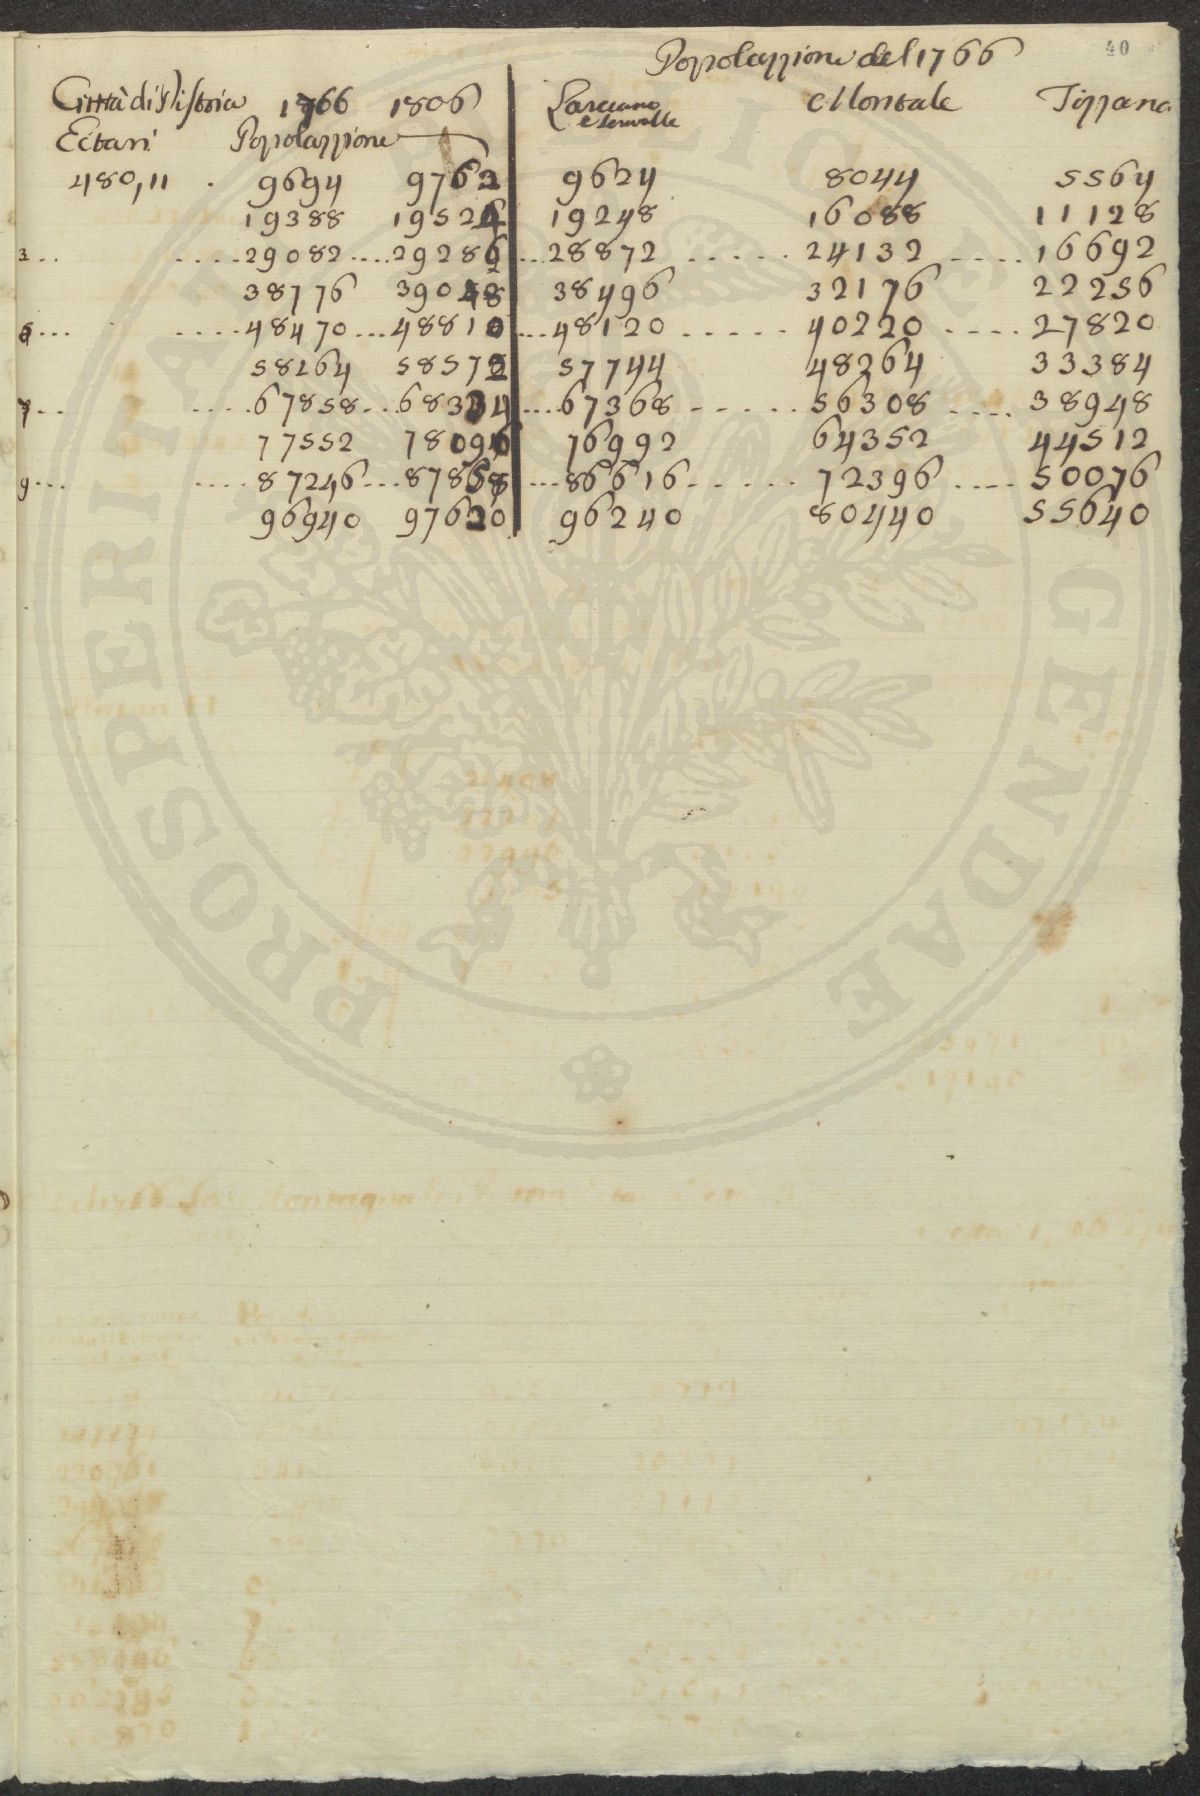 40
Popolazzione del 1766
Città di Pistoia 1766 1806 Larciano e Serravalle Montale Tizzana
Ectari Popolazzione
480,11 . 9694 9762 9624 8044 5564
19388 19524 19248 16088 11128
3 .. .... 29082 .... 29286 ... 28872 ..... 24132 .... 16692
38776 39048 38496 32176 22256
5 ... .... 48470 ... 48810 ... 48120 ..... 40220 .... 27820
58164 58572 57744 48264 33384
7 .. .... 67858 .. 68334 .... 67368 ..... 56308 .... 38948
77552 78096 76992 64352 44512
9 ... .... 87246 ... 87858 ... 86616 ..... 72396 .... 50076
96940 97620 96240 80440 55640
PROSPERITATI PUBLICAE AUGENDAE